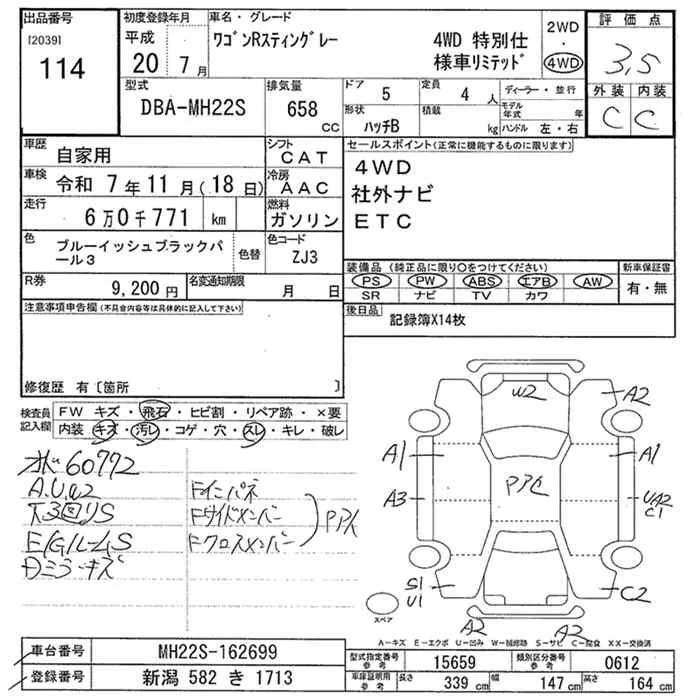 出品番号
[2039]
114
初度登録年月
平成
20 7月
車名・グレード
ワゴンRスティングレー 4WD 特別仕
様車リミテッド
2WD
・
4WD
評価点
3,5
外装 内装
C C
型式
DBA-MH22S
排気量
658 cc
ドア
5
定員
4 人
形状
ハッチB
積載
kg
ディーラー・並行
モデル
年式 年
ハンドル 左・右
車歴
自家用
シフト
CAT
車検
令和 7年11月(18日)
冷房
AAC
走行
6万0千771 km
燃料
ガソリン
色
ブルーイッシュブラックパ
ール3
色替
色コード
ZJ3
R券
9,200円
名変通知期限
月 日
セールスポイント(正常に機能するものに限ります)
4WD
社外ナビ
ETC
装備品 (純正品に限り○をつけてください)
PS PW ABS エアB AW
SR ナビ TV カワ
新車保証書
有・無
後日品
記録簿X14枚
注意事項申告欄(不具合内容等は具体的に記入して下さい)
修復歴 有〔箇所 〕
検査員
記入欄
FW キズ・飛石・ヒビ割・リペア跡・×要
内装・キズ・汚レ・コゲ・穴・スレ・キレ・破レ
60772
A.U.W2
下3回りS
E/Gルーム S
Dミラーキズ
Fインパネ
Fサイドメンバー
Fクロスメンバー
W2
A2
A1
A1
A3
PAC
UA2
C1
S1
U1
C2
A2
A2
スペア
A-キズ E-エクボ U-凹み W-補修跡 S-サビ C-腐食 XX-交換済
車台番号
MH22S-162699
登録番号
新潟 582 き 1713
型式指定番号
参考
15659
類別区分番号
参考
0612
車庫証明用
参考
長さ
339 cm
幅
147 cm
高さ
164 cm